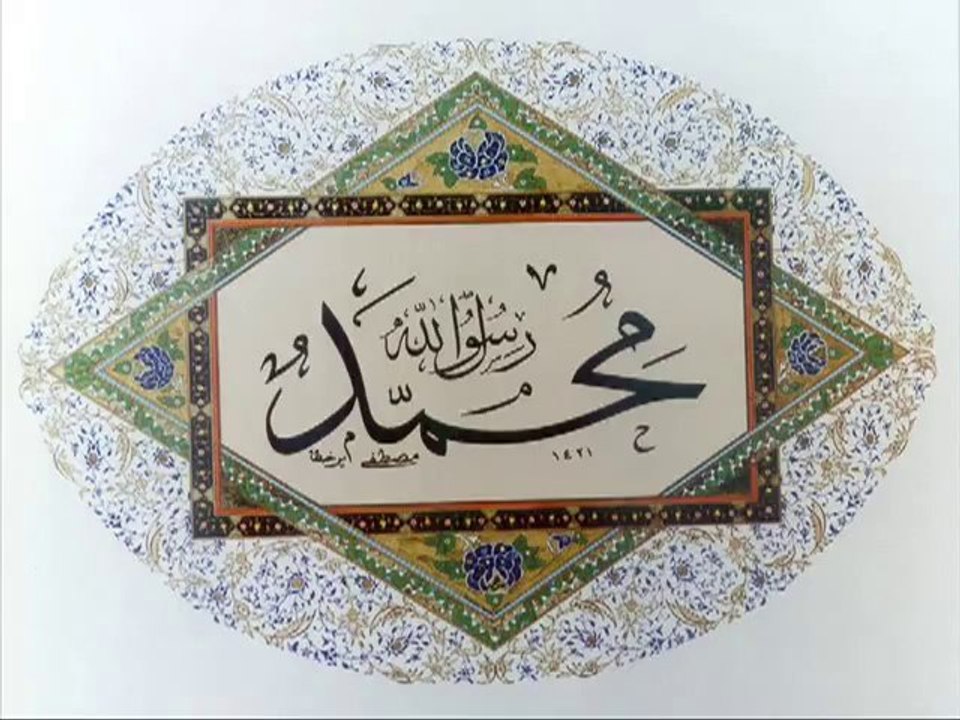 مُحَمَّدٌ
رَسُولُ اللّٰه
١٤٢١
مصطفى